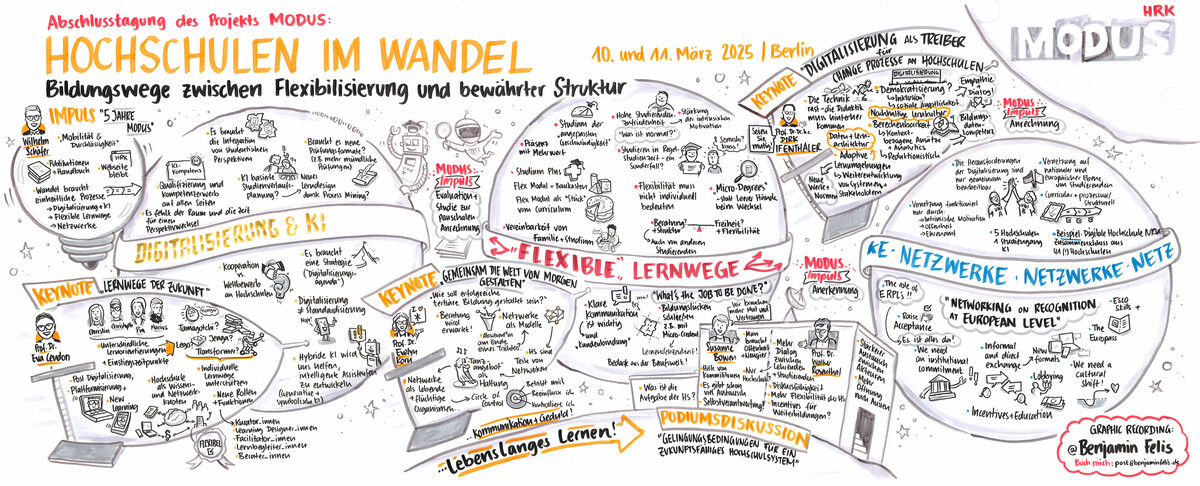 Abschlusstagung des Projekts MODUS:
HOCHSCHULEN IM WANDEL
10. und 11. März 2025 | Berlin
Bildungswege zwischen Flexibilisierung und bewährter Struktur
HRK
MODUS
IMPULS "5 JAHRE
MODUS"
Wilhelm
Schäfer
Mobilität &
Durchlässigkeit
Publikationen
+ Handbuch
HRK
Webseite
bleibt
Wandel braucht
einheitliche Prozesse
→ Digitalisierung + KI
→ Flexible Lernwege
→ Netzwerke
Es braucht
die Integration
von studentischen
Perspektiven
KI-
Kompetenz
Qualifizierung und
Kompetenzerwerb
auf allen Seiten
KI basierte
Studienverlaufs-
planung
Braucht es neue
Prüfungsformate?
(z.B. mehr mündliche
Prüfungen)
Neues
Lerndesign
dank Process Mining?
Es fehlt der Raum und die Zeit
für einen
Perspektivwechsel
DIGITALISIERUNG & KI
Kooperation
Wettbewerb
an Hochschulen
Es braucht
eine Strategie
("Digitalisierungs-
agenda")
Digitalisierung
≠ Standardisierung
Hybride KI wird
uns helfen,
intelligente Assistenten
zu entwickeln
(Generative +
symbolische KI)
KEYNOTE
"LERNWEGE DER ZUKUNFT"
Prof. Dr.
Eva Cendon
Christin
Christoph
Pia
Marcus
Unterschiedliche
Lernorientierungen
+ Einstiegszeitpunkte
Tamagotchi?
Lego?
Jenga?
Transformer?
Post Digitalisierung,
Plattformisierung,
New
Learning
Hochschule
als Wissens-
und Netzwerk-
knoten
Individuelle
Lernwege
unterstützen
Neue Rollen
+ Funktionen
FLEXIBEL
Kurator_innen
Learning Designer_innen
Facilitator_innen
Lernbegleiter_innen
Berater_innen
MODUS
Impuls
Evaluation +
Studie zur
pauschalen
Anrechnung
Studium der
"angepassten
Geschwindigkeit"
Präsenz
mit Mehrwert
Studium Plus
Flex Modul - Baukasten
Flex Modul als "Stück"
vom Curriculum
Vereinbarkeit von
Familie + Studium
Hohe Studierenden-
zufriedenheit
"Was ist normal?"
Studieren in Regel-
studienzeit - ein
Sonderfall?
Stärkung
der intrinsischen
Motivation
Flexibilität muss
nicht individuell
bedeuten
"Micro-Degrees"
statt leere Hände
beim Wechsel
Beratung?
+ Struktur
Freiheit?
+ Flexibilität
Auch von anderen
Studierenden
"FLEXIBLE" LERNWEGE
KEYNOTE
"GEMEINSAM DIE WELT VON MORGEN
GESTALTEN"
Prof. Dr.
Evelyn
Korn
"Wie soll erfolgreiche
tertiäre Bildung gestaltet sein?"
Beratung
wird
erwartet!
Netzwerke
als Modelle
Netzwerke
als lebende,
flüchtige
Organismen
"Tanz-
angebot"
als
Haltung
HS sind
Teil von
Netzwerken
Circle of
Control
Kommunikation + Geduld!
...Lebenslanges Lernen!
Klare
Kommunikation
ist wichtig
und
Rückenbindung!
"What's the JOB TO BE DONE?"
Bildungslücken
schließen
z.B. mit
Micro-Credentials
Lernendenzentriert!
Bedarf an der Berufswelt!
Was ist die
Aufgabe der HS?
Wir brauchen
mehr Mut und
Vertrauen
Susanne
Bowen
Hilfe von
Kommilitonen
Es gibt schon
viel Austausch
Selbstverantwortung!
Man
braucht
Offenheit
+ Neugier
Mehr
Dialog
zwischen
Lehrenden +
Studierenden
Prof. Dr.
Walter
Rosenthal
Diskursfähigkeit
Mehr Flexibilität des HS
Incentives für
Weiterbildungen?
Stärkerer
Austausch zwischen
Akteuren
Mehr Offene
PODIUMSDISKUSSION
"GELINGUNGSBEDINGUNGEN FÜR EIN
ZUKUNFTSFÄHIGES HOCHSCHULSYSTEM"
MODUS
Impuls
Anerkennung
KEYNOTE
"DIGITALISIERUNG ALS TREIBER
für
CHANGE PROZESSE AN HOCHSCHULEN
Seien
Sie
mutig
Prof. Dr.
DIRK
IFENTHALER
Die Technik
... das die Didaktik
muss hinterher
kommen
Daten + Lern-
architektur
Adaptive
Lernumgebungen
→ Weiterentwicklung
von Systemen +
Stakeholdern
Neue
Werte +
Normen
DIGITALISIERUNG
Demokratisierung?
→ Inklusion?
→ soziale Ängstlichkeit
Nachhaltige Lernkultur
Berechenbarkeit
vs Kontext-
bezogene Ansätze
+ Annahmen
→ Reduktionistisch
Empathie
Dialog!
Bildungs-
daten-
kompetenz
MODUS
Impuls
Anrechnung
Die Herausforderungen
der Digitalisierung sind
nur gemeinsam
bearbeitbar
Vernetzung auf
nationaler und
europäischer Ebene
von Studierenden
Curricular + prozessual/
Strukturell
Vernetzung funktioniert
nur durch:
→ Intrinsische Motivation
→ Offenheit
→ Ehrenamt
5 Hochschulen
4 Studiengänge
KI
Beispiel: Digitale Hochschule NRW
Zusammenschluss aus
42 (!) Hochschulen
KE · NETZWERKE · NETZWERKE · NETZ
"The role of
ERPL's!"
Raise
Acceptance
Es ist alles da!
We need
an institutional
commitment
"NETWORKING ON RECOGNITION
AT EUROPEAN LEVEL"
Informal
and direct
exchange
New
formats
Lobbying
Incentives + Education
ESCO
Skills +
The
Europass
We need a
cultural
shift!
GRAPHIC RECORDING:
@Benjamin Felis
Buch mich: post@benjaminfelis.de